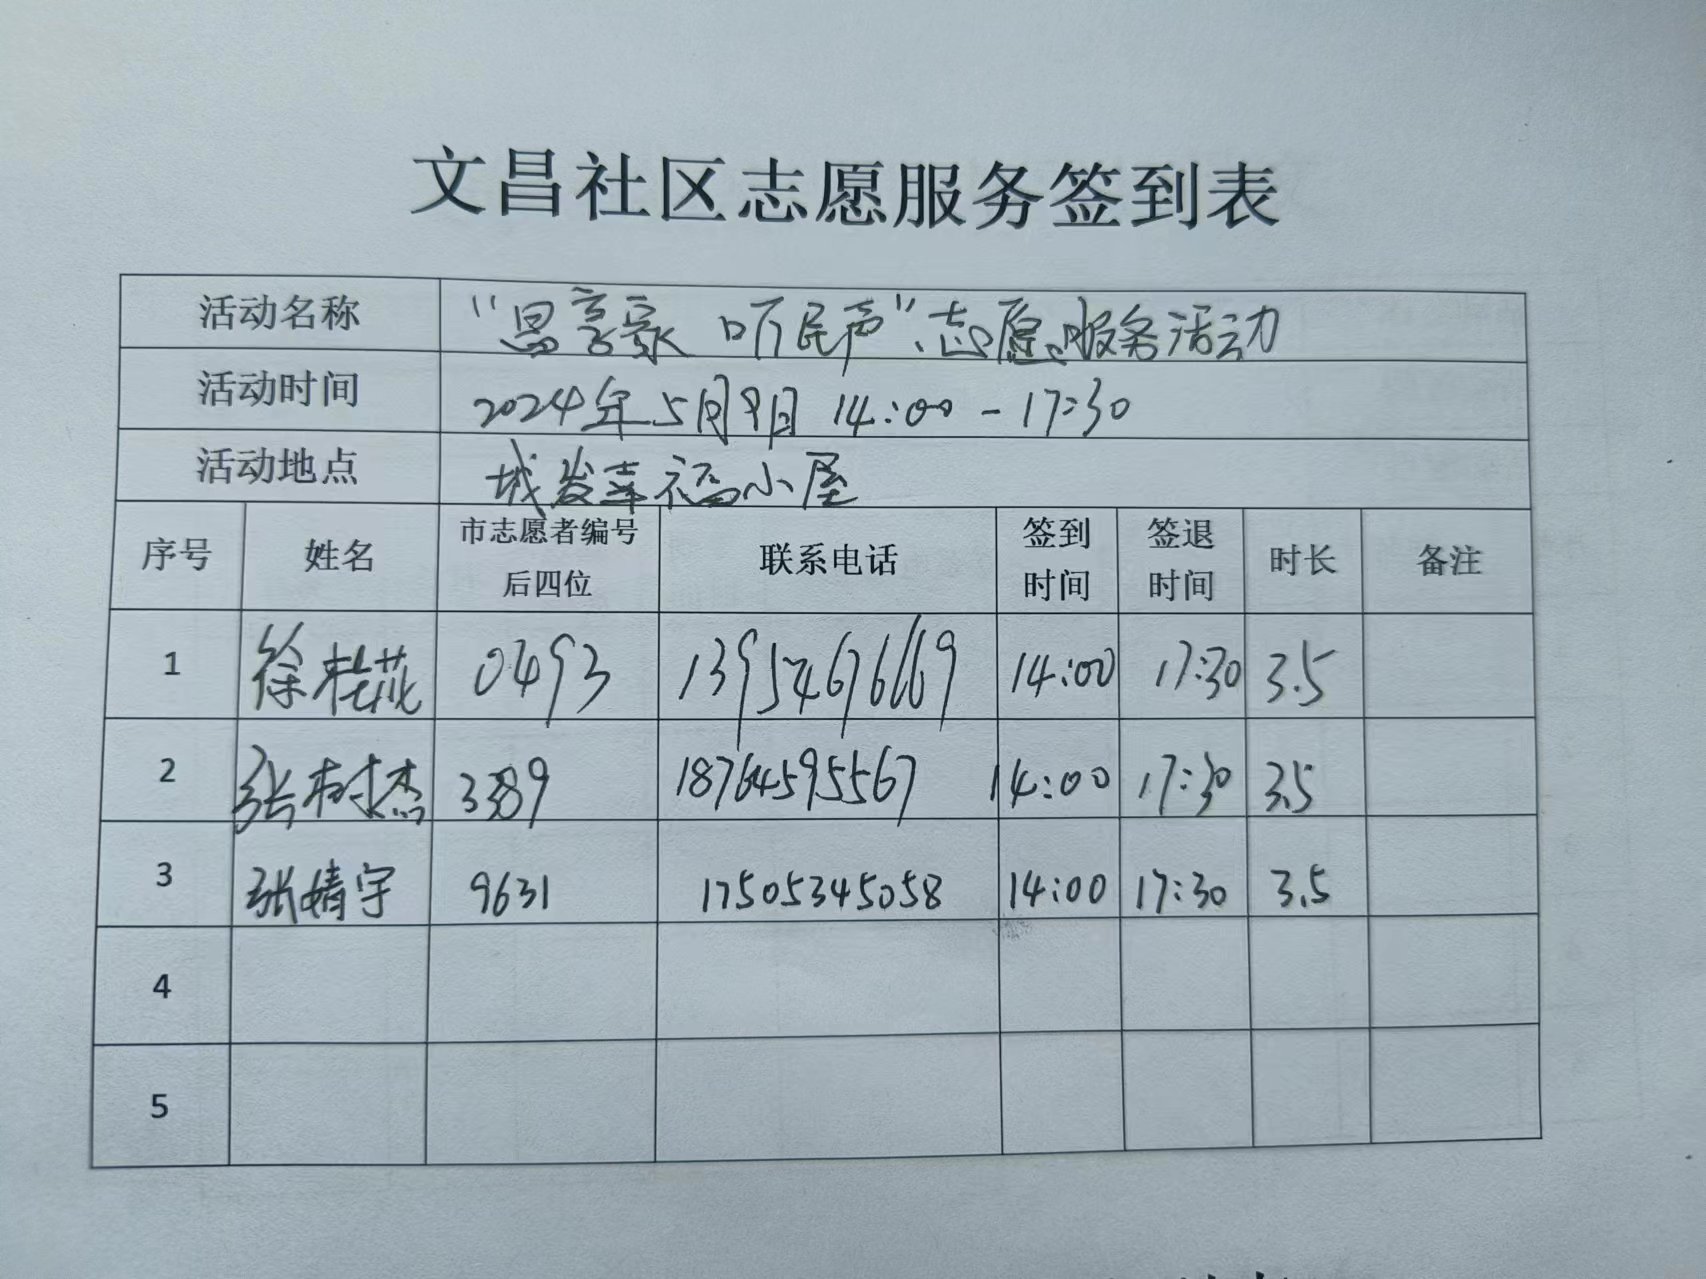 文昌社区志愿服务签到表
活动名称 "昌享家 听民声"志愿服务活动
活动时间 2024年5月9日 14:00-17:30
活动地点 城发幸福小屋
序号 姓名 市志愿者编号后四位 联系电话 签到时间 签退时间 时长 备注
1 徐桂花 0493 13954676669 14:00 17:30 3.5
2 张树杰 3389 18764595567 14:00 17:30 3.5
3 张婧宇 9631 17505345058 14:00 17:30 3.5
4
5